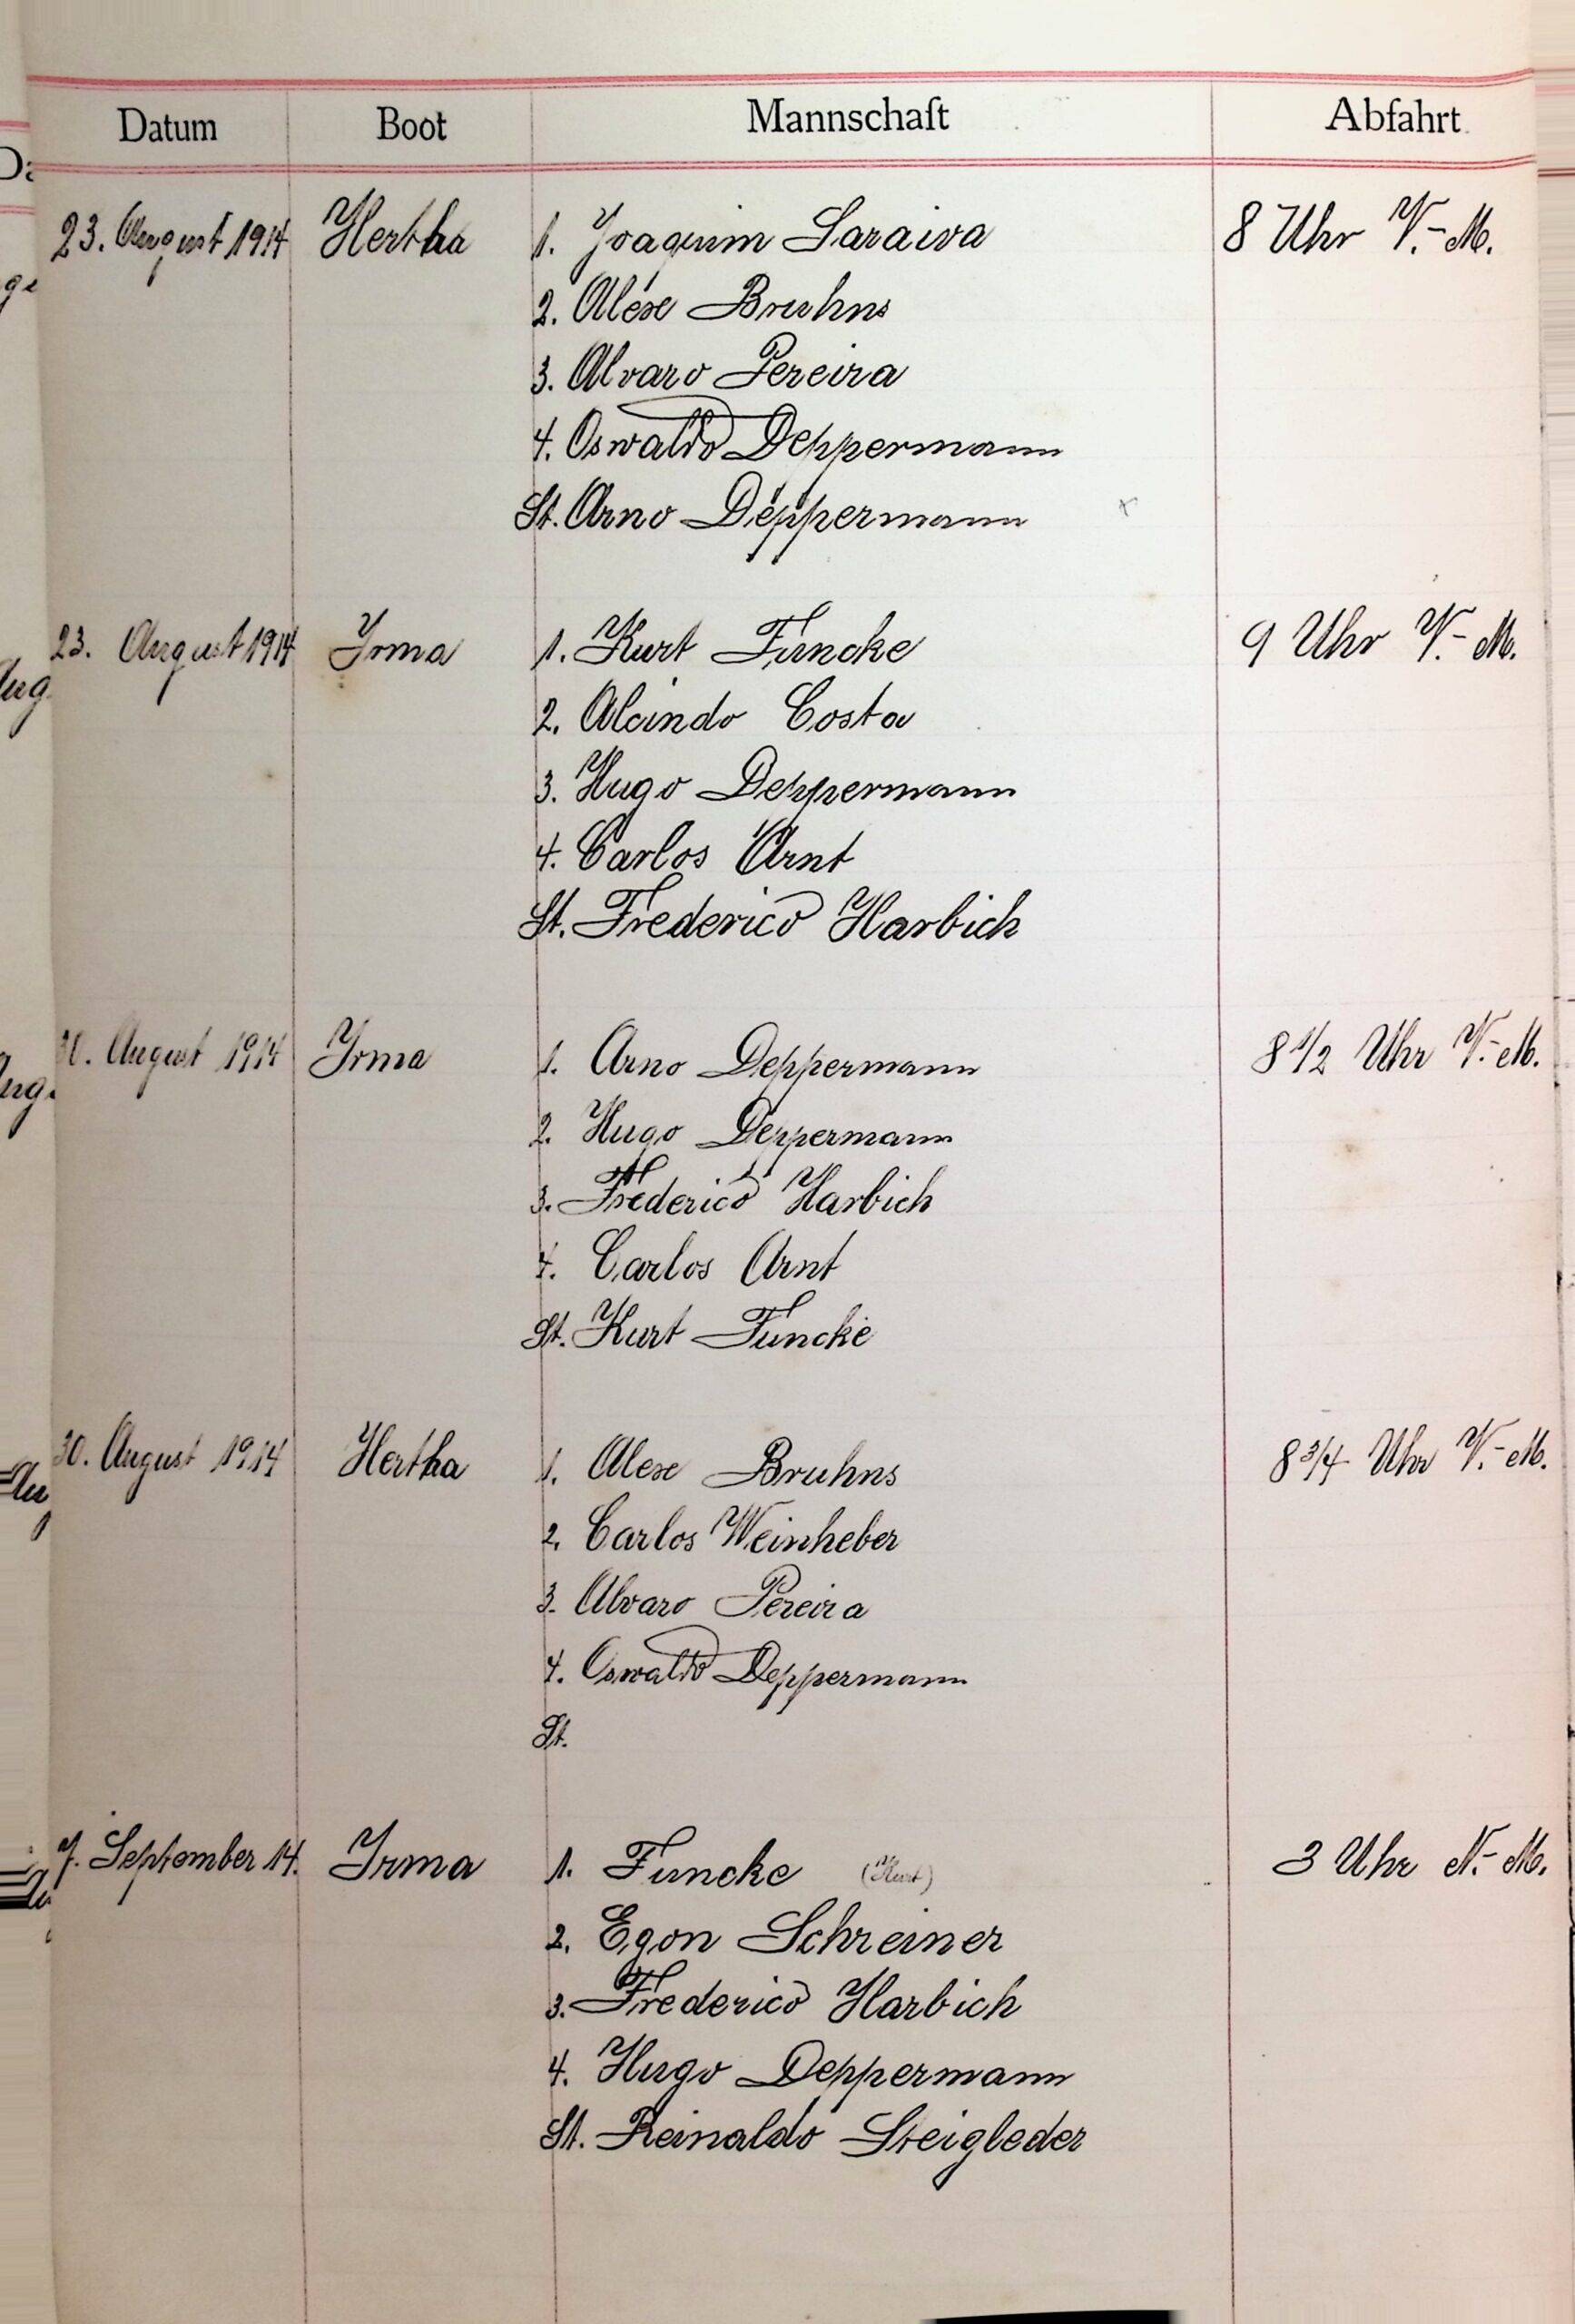 Datum Boot Mannschaft Abfahrt
23. August 1914 Hertha 1. Joaquim Saraiva 8 Uhr V.-M.
2. Alex Bruhns
3. Alvaro Pereira
4. Oswaldo Deppermann
St. Arno Deppermann
23. August 1914 Irma 1. Kurt Funcke 9 Uhr V.-M.
2. Alcindo Costa
3. Hugo Deppermann
4. Carlos Arnt
St. Frederico Harbich
30. August 1914 Irma 1. Arno Deppermann 8 1/2 Uhr V.-M.
2. Hugo Deppermann
3. Frederico Harbich
4. Carlos Arnt
St. Kurt Funcke
30. August 1914 Hertha 1. Alex Bruhns 8 3/4 Uhr V.-M.
2. Carlos Weinheber
3. Alvaro Pereira
4. Oswaldo Deppermann
St.
7. September 14. Irma 1. Funcke (Kurt) 3 Uhr N.-M.
2. Egon Schreiner
3. Frederico Harbich
4. Hugo Deppermann
St. Reinaldo Steigleder